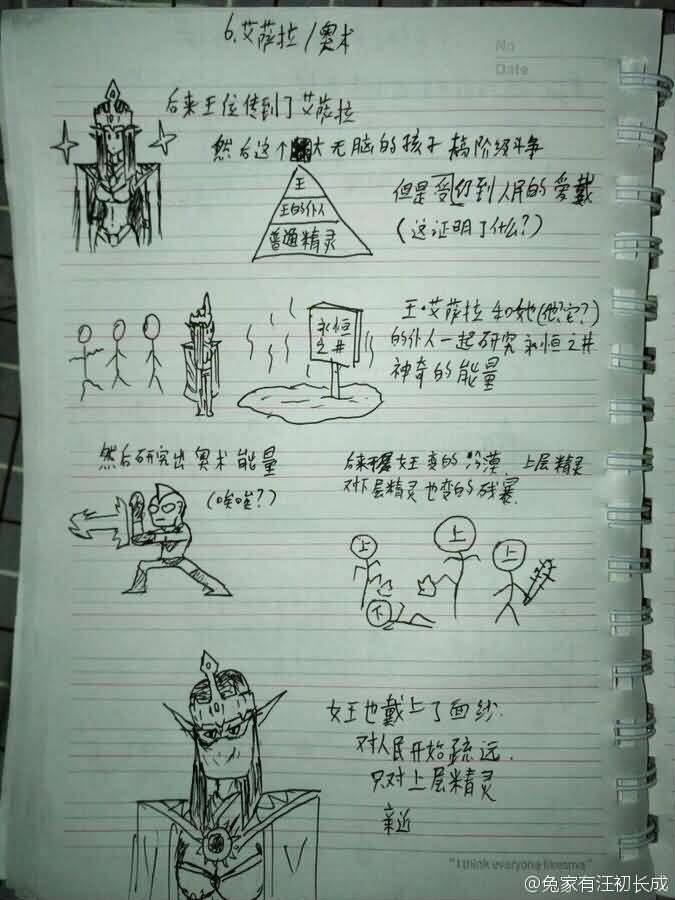 6.艾萨拉/奥术
No
Date
后来王位传到了艾萨拉
然后这个大无脑的孩子搞阶级斗争
王
王的仆人
普通精灵
但是受到人民的爱戴
(这证明了什么?)
永恒
之井
王·艾萨拉和她(他?它?)
的仆人一起研究永恒之井
神奇的能量
然后研究出奥术能量
(唉唉?)
后来女王变的冷漠.上层精灵
对下层精灵也变的残暴.
上
上
上
下
女王也戴上了面纱.
对人民开始疏远.
只对上层精灵
亲近
"I think everyone likesme"
@兔家有汪初长成